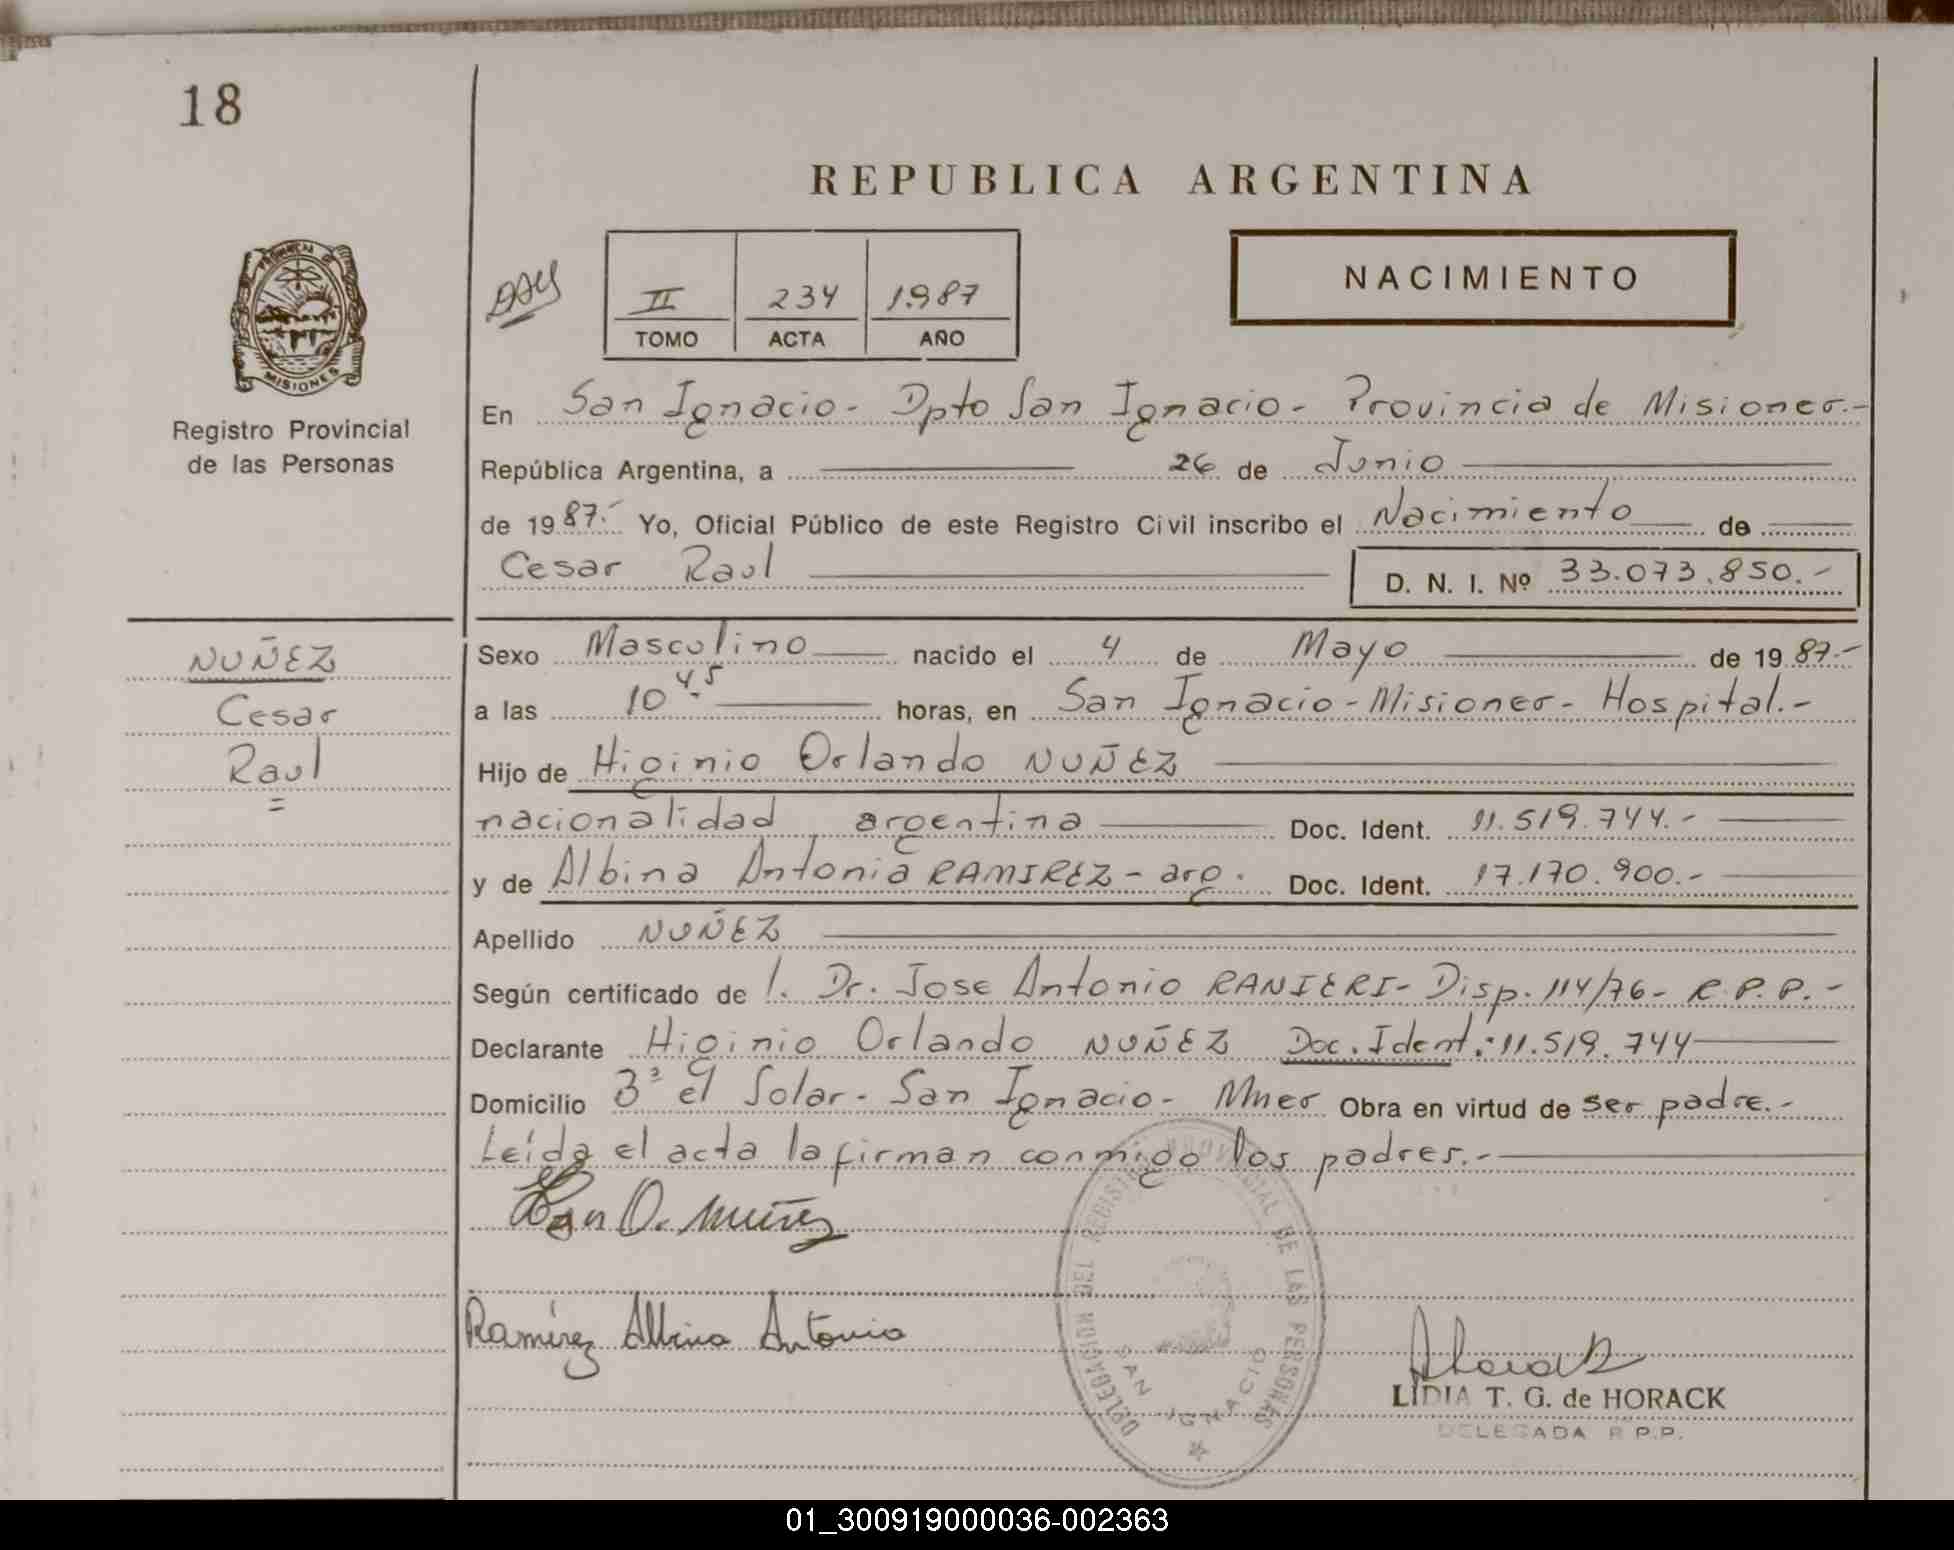 18
REPUBLICA ARGENTINA
II 234 1.987
TOMO ACTA AÑO
NACIMIENTO
PROVINCIA DE MISIONES
Registro Provincial
de las Personas
En San Ignacio - Dpto San Ignacio - Provincia de Misiones.-
República Argentina, a 26 de Junio
de 1987.- Yo, Oficial Público de este Registro Civil inscribo el Nacimiento de
Cesar Raul D. N. I. Nº 33.073.850.-
NUÑEZ
Cesar
Raul
=
Sexo Masculino nacido el 4 de Mayo de 1987.-
a las 10 45 horas, en San Ignacio - Misiones - Hospital.-
Hijo de Higinio Orlando NUÑEZ
nacionalidad argentina Doc. Ident. 11.519.744.-
y de Albina Antonia RAMIREZ - arg. Doc. Ident. 17.170.900.-
Apellido NUÑEZ
Según certificado de l. Dr. Jose Antonio RANIERI - Disp. 114/76 - R.P.P.-
Declarante Higinio Orlando NUÑEZ Doc. Ident: 11.519.744
Domicilio el Solar - San Ignacio - Mnes Obra en virtud de ser padre.-
Leída el acta la firman conmigo los padres.-
O. Nuñez
Ramírez Albina Antonia
DELEGACION DEL REGISTRO PROVINCIAL DE LAS PERSONAS
SAN IGNACIO
LIDIA T. G. de HORACK
DELEGADA R.P.P.
01_300919000036-002363